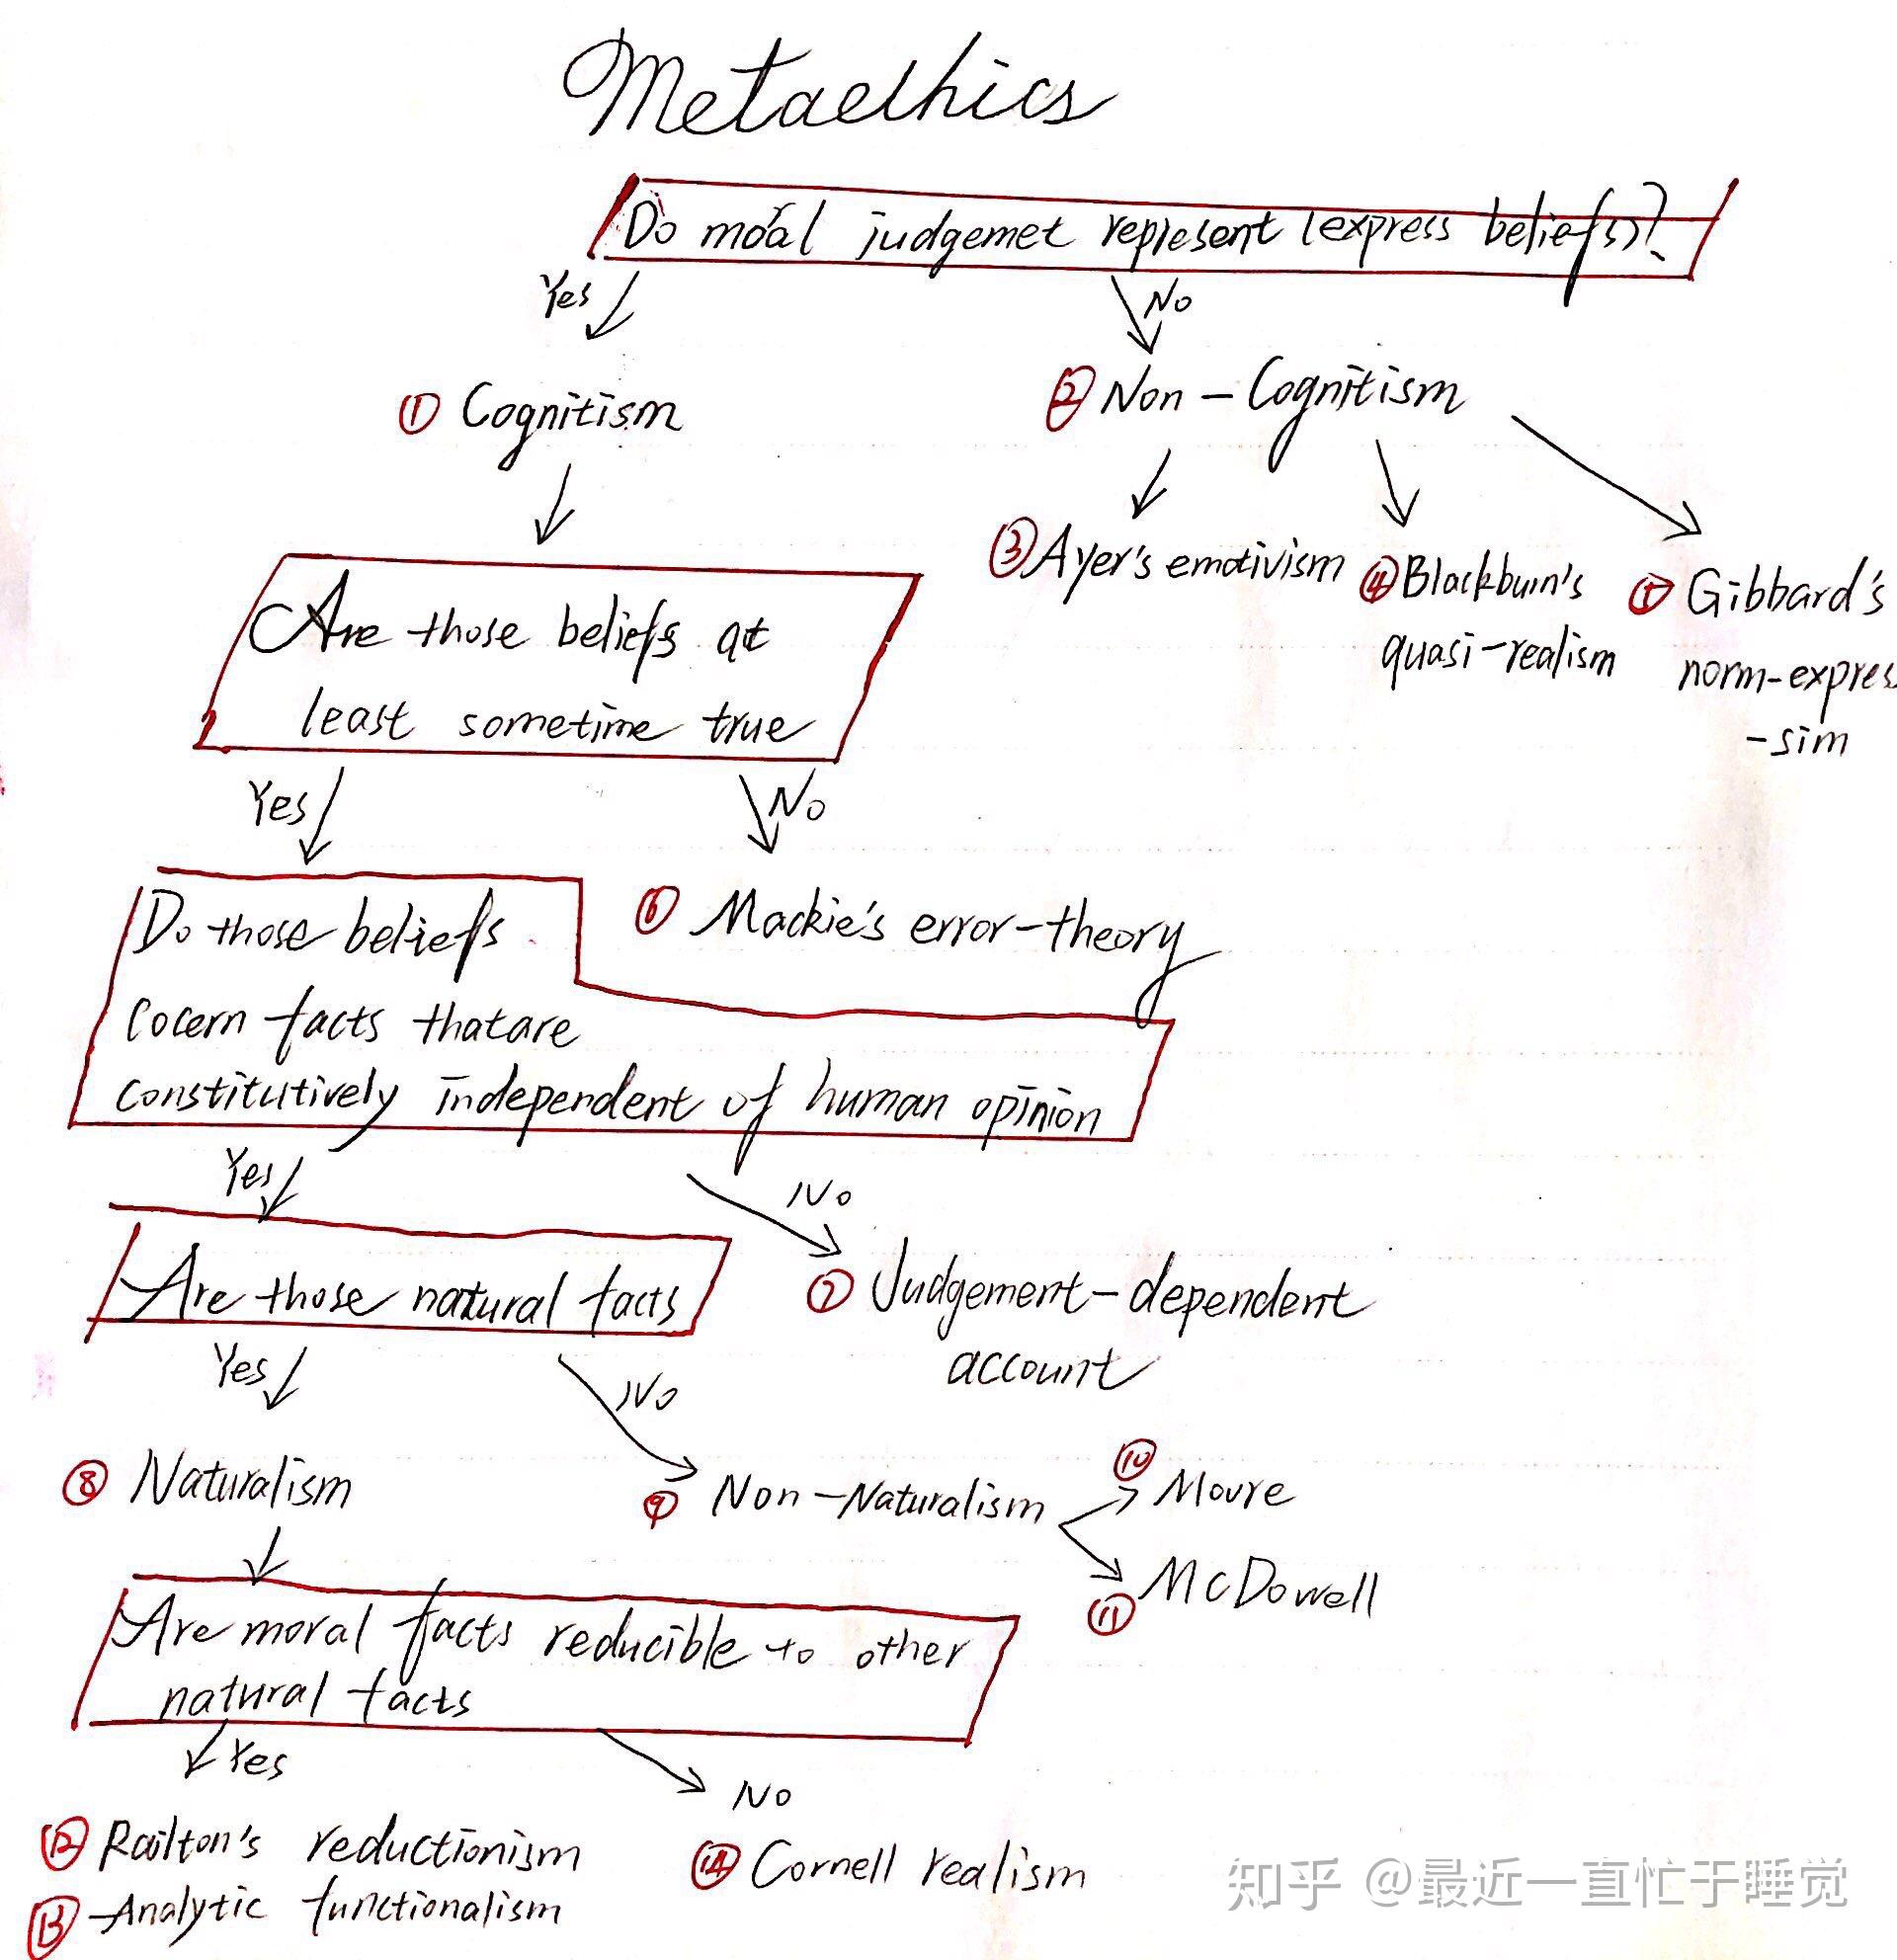 Metaethics
Do moral judgemet represent (express beliefs)?
Yes
No
① Cognitism
② Non-Cognitism
③ Ayer's emotivism
④ Blackburn's
quasi-realism
⑤ Gibbard's
norm-expres
-sim
Are those beliefs at
least sometime true
Yes
No
Do those beliefs
cocern facts that are
constitutively independent of human opinion
⑥ Mackie's error-theory
Yes
No
Are those natural facts
⑦ Judgement-dependent
account
Yes
No
⑧ Naturalism
⑨ Non-Naturalism
⑩ Moore
⑪ McDowell
Are moral facts reducible to other
natural facts
Yes
No
⑫ Railton's reductionism
⑬ Analytic functionalism
⑭ Cornell realism
知乎 @最近一直忙于睡觉